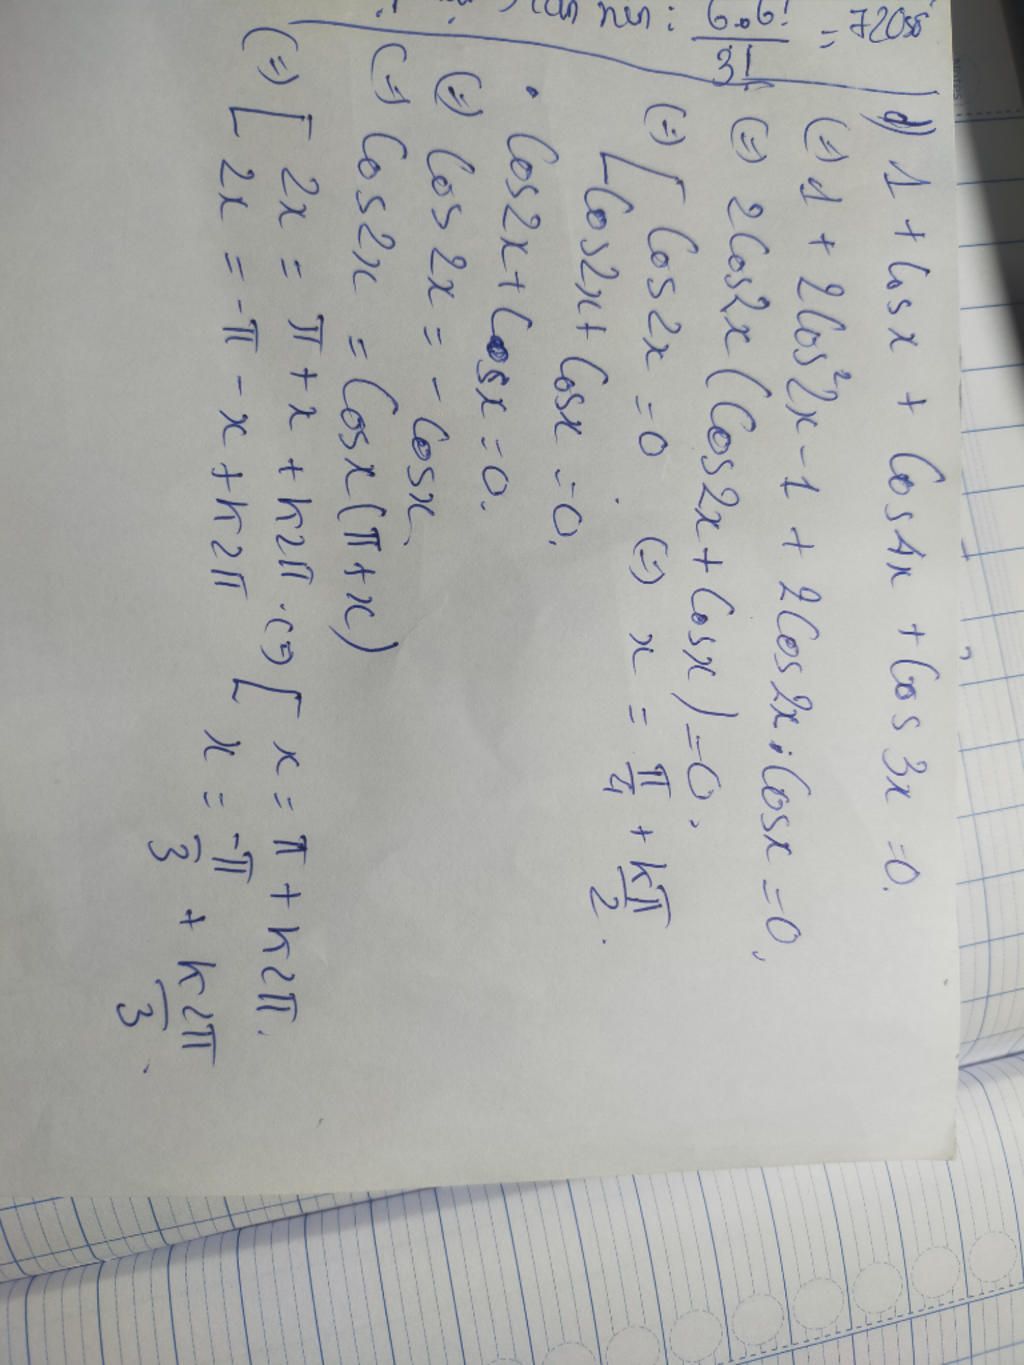 6.6!
3!
= 720 số
d) 1 + Cos x + Cos4x + Cos 3x = 0.
(=) 1 + 2Cos²2x - 1 + 2Cos 2x . Cosx = 0.
(=) 2Cos2x (Cos2x + Cosx) = 0.
(=) [ Cos2x = 0 (=) x = π/4 + kπ/2.
Cos2x + Cosx = 0.
• Cos2x + Cosx = 0.
(=) Cos 2x = - Cosx.
(=) Cos2x = Cosx(π+x)
(=) [ 2x = π + x + k2π . (=) [ x = π + k2π.
2x = -π - x + k2π x = -π/3 + k2π/3.